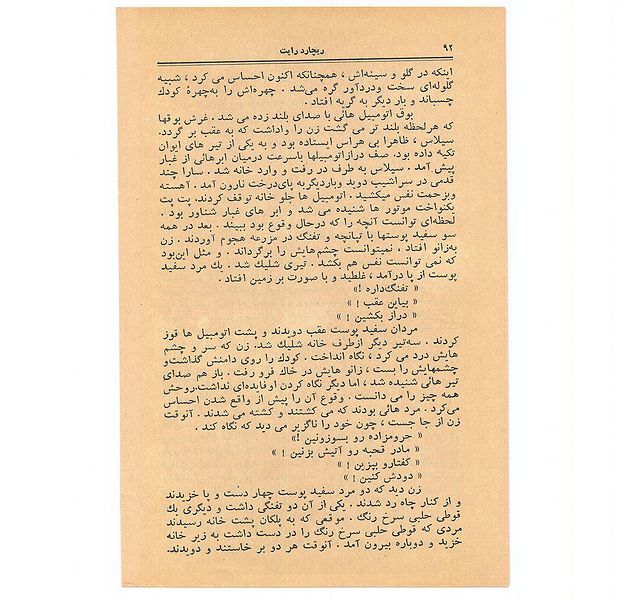 ۹۲
ریچارد رایت
اینکه در گلو و سینه‌اش ، همچنانکه اکنون احساس می کرد ، شبیه
گلوله‌ای سخت ودردآور گره می‌شد . چهره‌اش را به‌چهرهٔ کودک
چسباند و بار دیگر به گریه افتاد .
بوق اتومبیل هائی با صدای بلند زده می شد . غرش بوقها
که هرلحظه بلند تر می گشت زن را واداشت که به عقب بر گردد.
سیلاس ، ظاهرا بی هراس ایستاده بود و به یکی از تیر های ایوان
تکیه داده بود. صف درازاتومبیلها باسرعت درمیان ابرهائی از غبار
پیش آمد . سیلاس به طرف در رفت و وارد خانه شد . سارا چند
قدمی در سراشیب دوید وباردیگربه پای‌درخت نارون آمد . آهسته
وبزحمت نفس میکشید . اتومبیل ها جلو خانه توقف کردند. پت پت
یکنواخت موتور ها شنیده می شد و ابر های غبار شناور بود .
لحظه‌ای توانست آنچه را که درحال وقوع بود ببیند . بعد در همه
سو سفید پوستها با تپانچه و تفنگ در مزرعه هجوم آوردند . زن
به‌زانو افتاد . نمیتوانست چشم‌هایش را برگرداند . و مثل این‌بود
که نمی توانست نفس هم بکشد . تیری شلیک شد . یک مرد سفید
پوست از پا درآمد ، غلطید و با صورت بر زمین افتاد .
« تفنگ‌داره !»
« بیاین عقب ! »
« دراز بکشین ! »
مردان سفید پوست عقب دویدند و پشت اتومبیل ها قوز
کردند . سه‌تیر دیگر ازطرف خانه شلیک شد. زن که سر و چشم
هایش درد می کرد ، نگاه انداخت . کودک را روی دامنش گذاشت‌و
چشمهایش را بست ، زانو هایش در خاک فرو رفت . باز هم صدای
تیر هائی شنیده شد ، اما دیگر نگاه کردن اوفایده‌ای نداشت.روحش
همه چیز را می دانست . وقوع آن را پیش از واقع شدن احساس
می‌کرد . مرد هائی بودند که می کشتند و کشته می شدند . آنوقت
زن از جا جست ، چون خود را ناگزیر می دید که نگاه کند .
« حرومزاده رو بسوزونین !»
« مادر قحبه رو آتیش بزنین ! »
« کفتارو بپزین ! »
« دودش کنین ! »
زن دید که دو مرد سفید پوست چهار دست و پا خزیدند
و از کنار چاه رد شدند . یکی از آن دو تفنگی داشت و دیگری یک
قوطی حلبی سرخ رنگ . موقعی که به پلکان پشت خانه رسیدند
مردی که قوطی حلبی سرخ رنگ را در دست داشت به زیر خانه
خزید و دوباره بیرون آمد . آنوقت هر دو بر خاستند و دویدند.